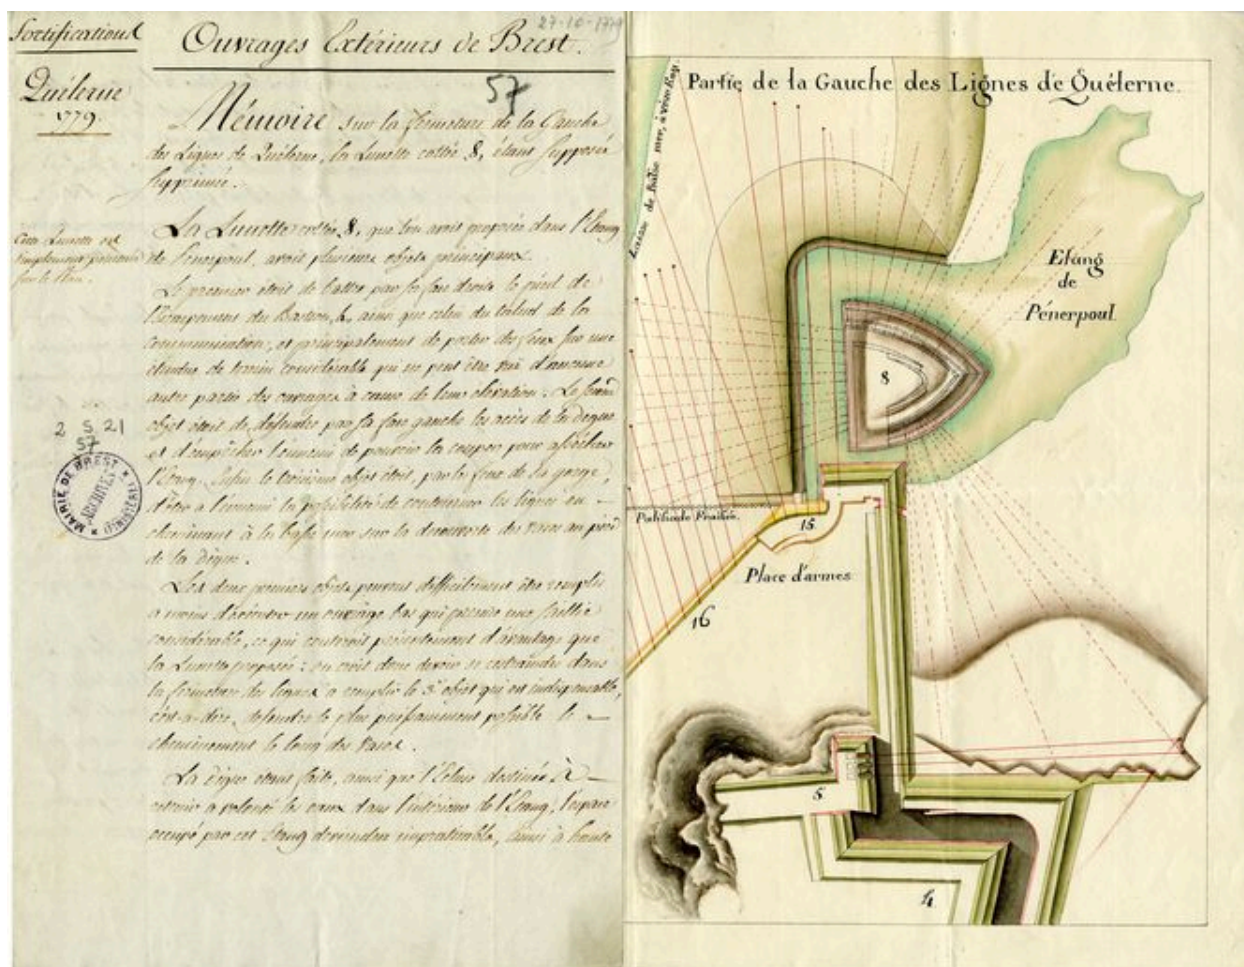 Fortifications
Quélerne
1779.
27-10-1779
Ouvrages Extérieurs de Brest.
57
Mémoire sur la fermeture de la Gauche
des Lignes de Quélerne, la Lunette cottée 8, étant supposée
supprimée.
Cette Lunette est
simplement ponctuée
sur le Plan.
La Lunette cottée 8, que l'on avait proposée dans l'Etang
de Penerpoul, avait plusieurs objets principaux.
Le premier étoit de battre par sa face droite le pied de
l'Escarpement du Bastion, ainsi que celui du talud de la
communication, et principalement de porter des feux sur une
étendue de terrein considérable qui ne peut être vüe d'aucune
autre partie des ouvrages à cause de leur élévation. Le second
objet étoit de défendre par sa face gauche les accès de la digue
et d'empêcher l'ennemi de pouvoir la couper pour assécher
l'Etang. Enfin le troisième objet étoit, par les feux de la gorge,
d'ôter a l'ennemi la possibilité de contourner les lignes en
cheminant à la basse mer sur la découverte des vases au pied
de la digue.
Les deux premiers objets peuvent difficilement être remplis
a moins d'exécuter un ouvrage bas qui prenne une saillie
considérable, ce qui couteroit présentement d'avantage que
la Lunette proposée; on croit donc devoir se restraindre dans
la fermeture des lignes a remplir le 3e objet qui est indispensable,
c'est-a-dire, défendre le plus puissamment possible le
cheminement le long des vases.
La digue étant faite, ainsi que l'Ecluse destinée à
retenir a volonté les eaux dans l'intérieur de l'Etang, l'espace
occupé par cet Etang deviendra impraticable, ainsi à haute
2 S 21
57
MAIRIE DE BREST
ARCHIVES
(FINISTÈRE)
Partie de la Gauche des Lignes de Quélerne.
Laisse de Basse mer, à vive Eau
Etang
de
Pénerpoul
8
Palissade Fraisée.
15
Place d'armes
16
5
4